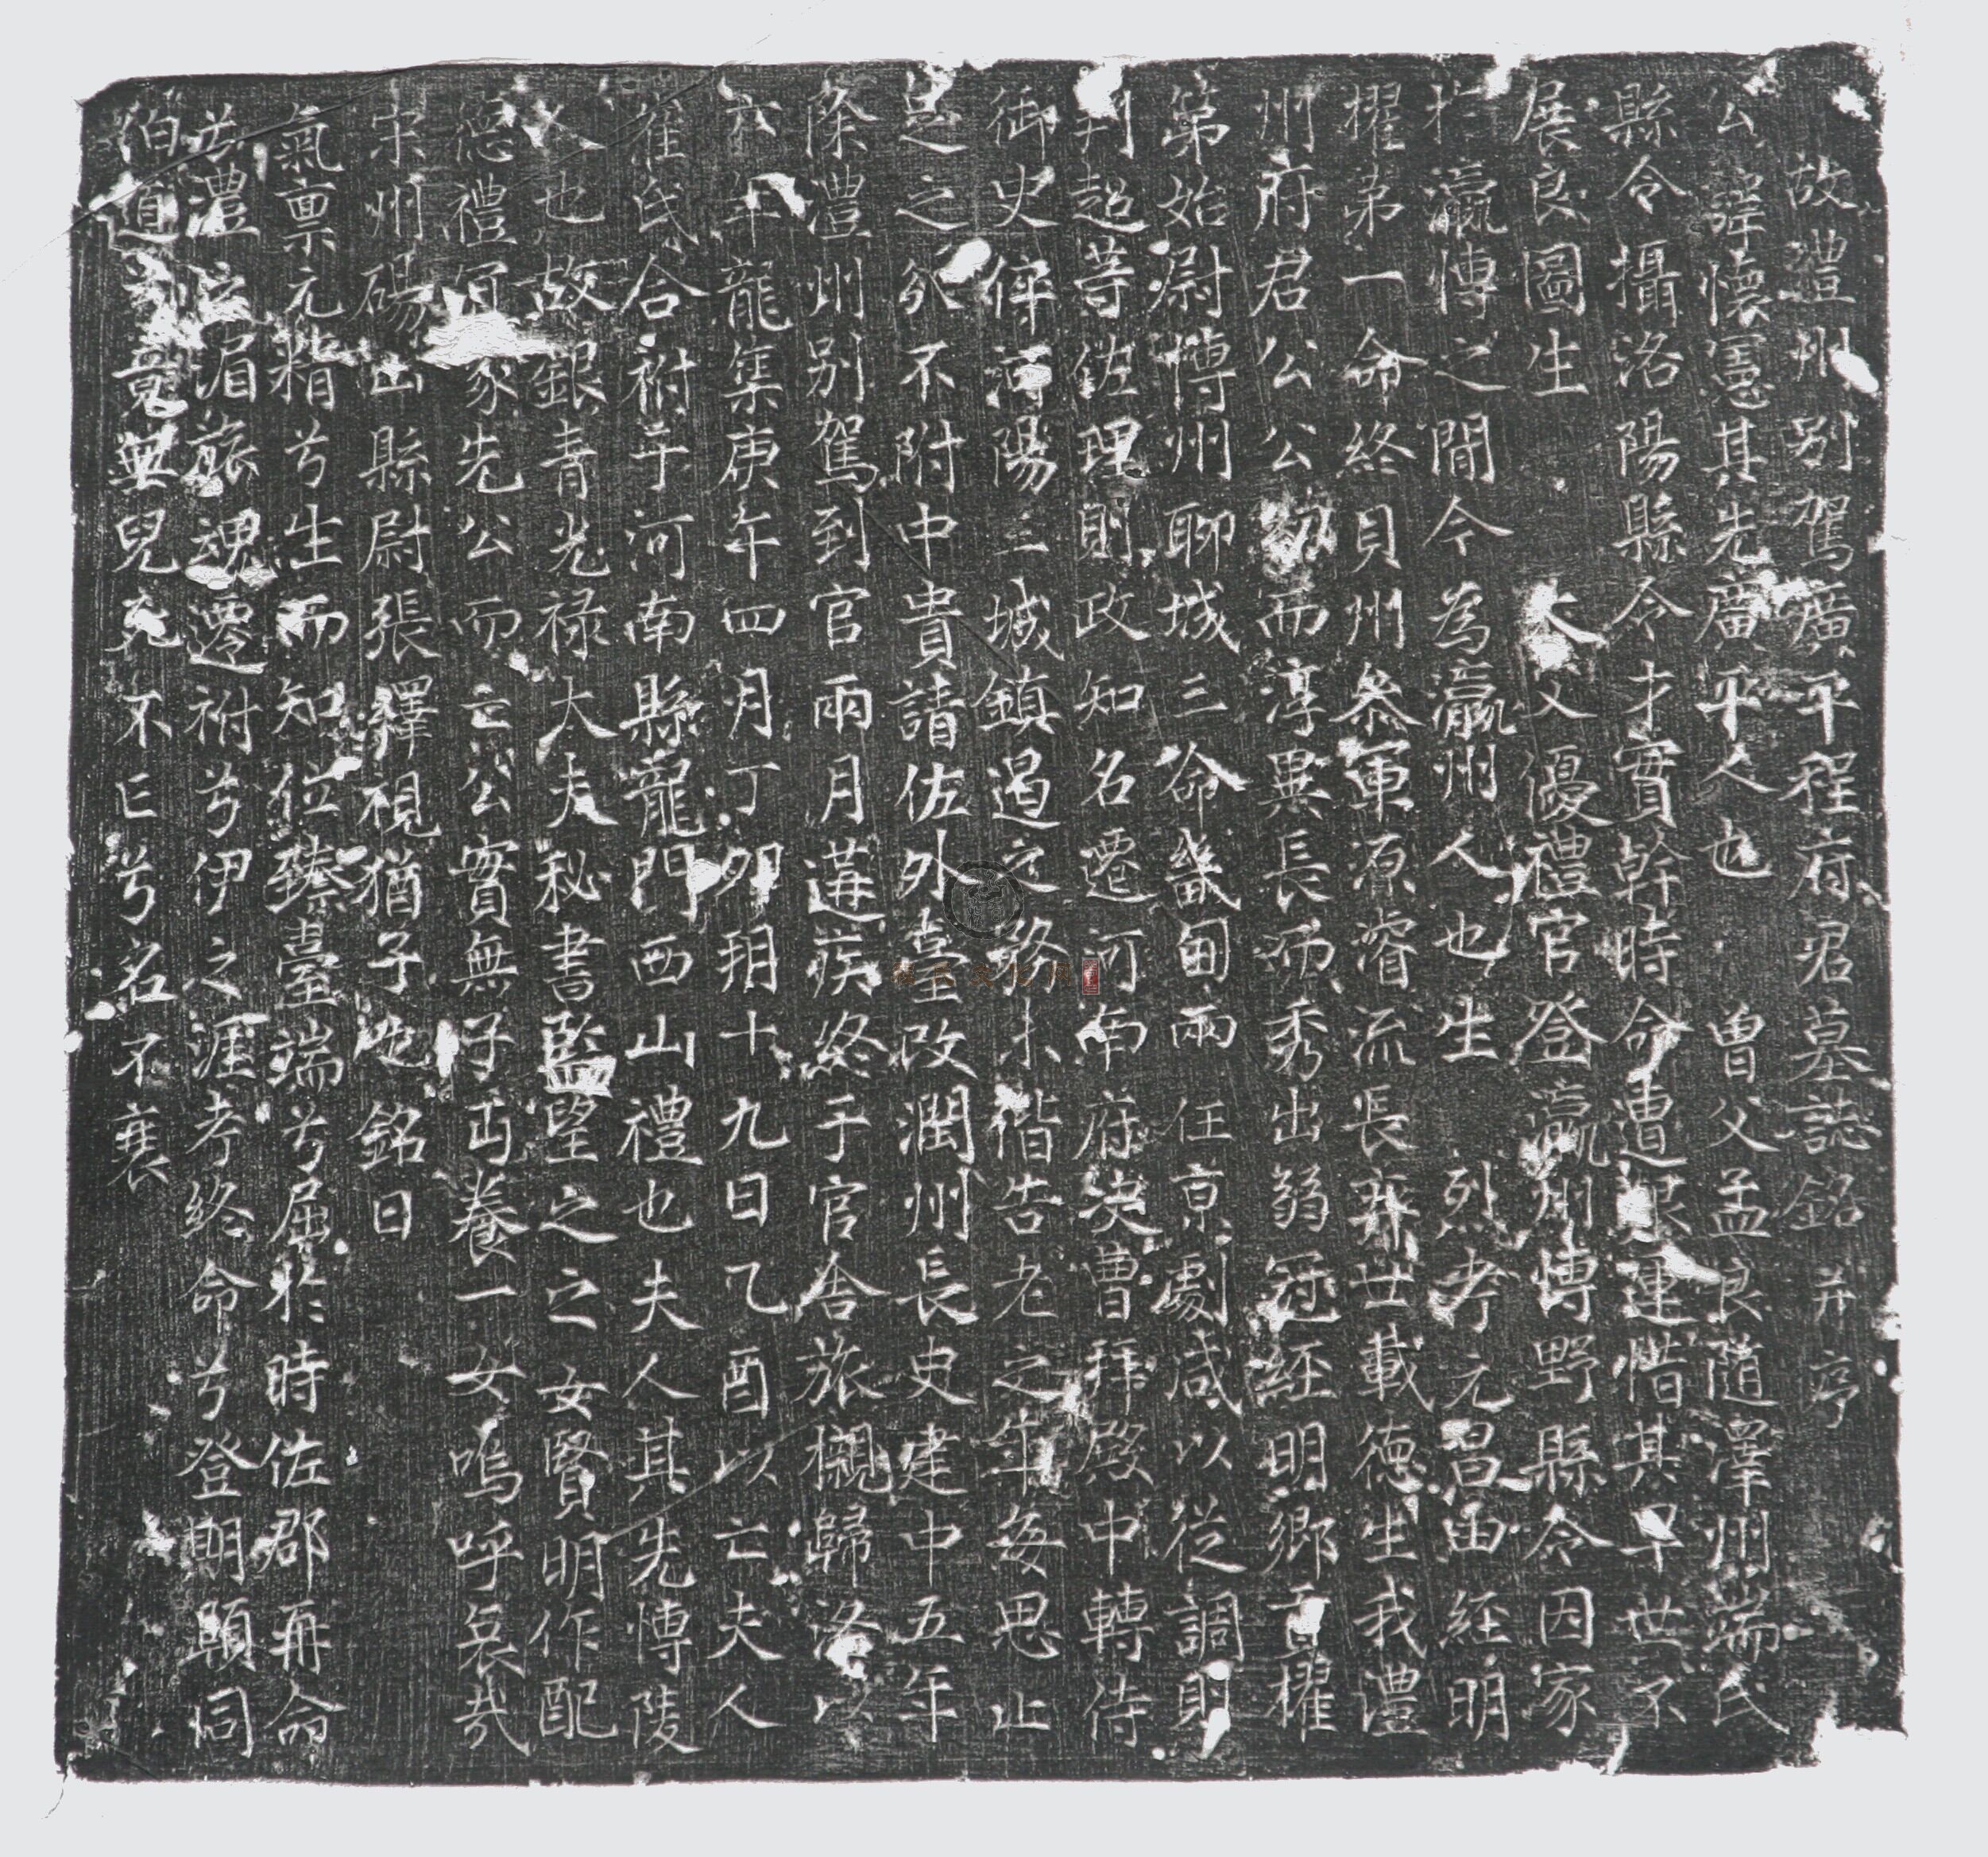 故澧州別駕廣平程府君墓誌銘并序
公諱懷憲其先廣平人也曾父孟良隨澤州端氏
縣令攝洛陽縣令才實幹時命遭艱運惜其早世不
展良圖生大父優禮官登瀛州博野縣令因家
於瀛博之間今為瀛州人也生烈考元昌由經明
擢第一命終貝州叅軍源濬流長弈世載德生我澧
州府君公公幼而淳異長而秀出弱冠經明鄉貢擢
第始尉博州聊城三命畿甸兩任京劇咸以從調則
判超等佐理則政知名遷河南府法曹拜殿中轉侍
御史倅河陽三城鎮遏之務未偕告老之年每思止
足之分不附中貴請佐外臺改潤州長史建中五年
除澧州別駕到官兩月遘疾終于官舍旅櫬歸洛以
六年龍集庚午四月丁卯朔十九日乙酉以亡夫人
崔氏合祔于河南縣龍門西山禮也夫人其先博陵
人也故銀青光祿大夫秘書監望之之女賢明作配
德禮冝家先公而亡公實無子丐養一女嗚呼哀哉
宋州碭山縣尉張繹視猶子也銘曰
氣稟元精兮生而知位臻臺端兮屈於時佐郡再命
兮澧之湄旅魂遷祔兮伊之涯考終命兮登期頤同
伯道兮竟無兒死不亡兮名不衰